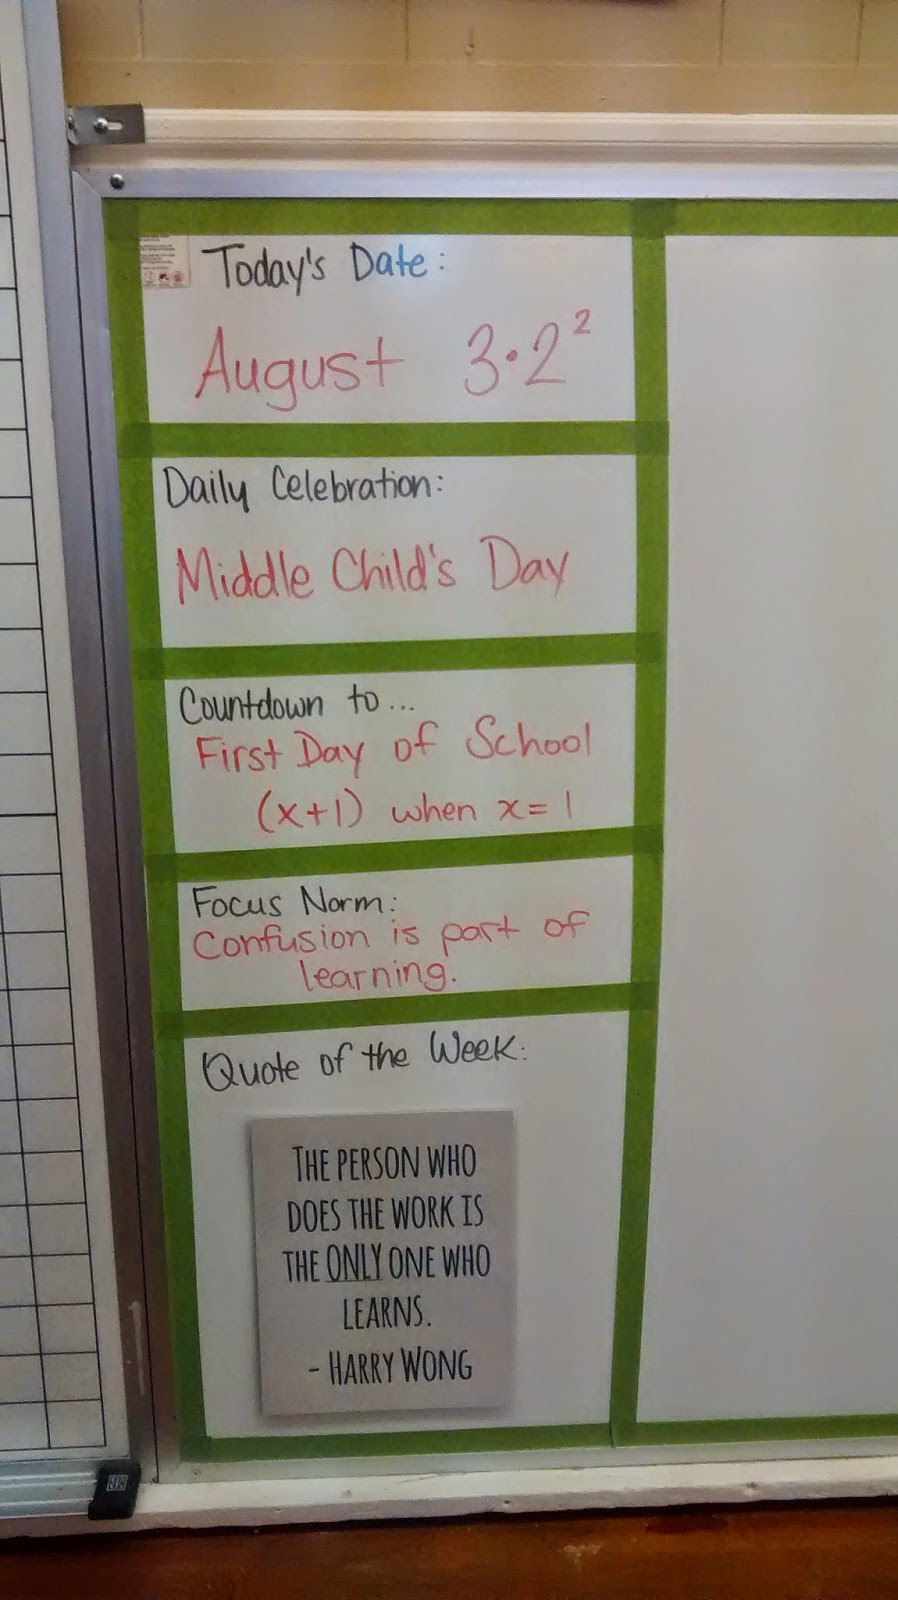 Today's Date:
August 3·2²
Daily Celebration:
Middle Child's Day
Countdown to...
First Day of School
(x+1) when x=1
Focus Norm:
Confusion is part of
learning.
Quote of the Week:
THE PERSON WHO
DOES THE WORK IS
THE ONLY ONE WHO
LEARNS.
- HARRY WONG